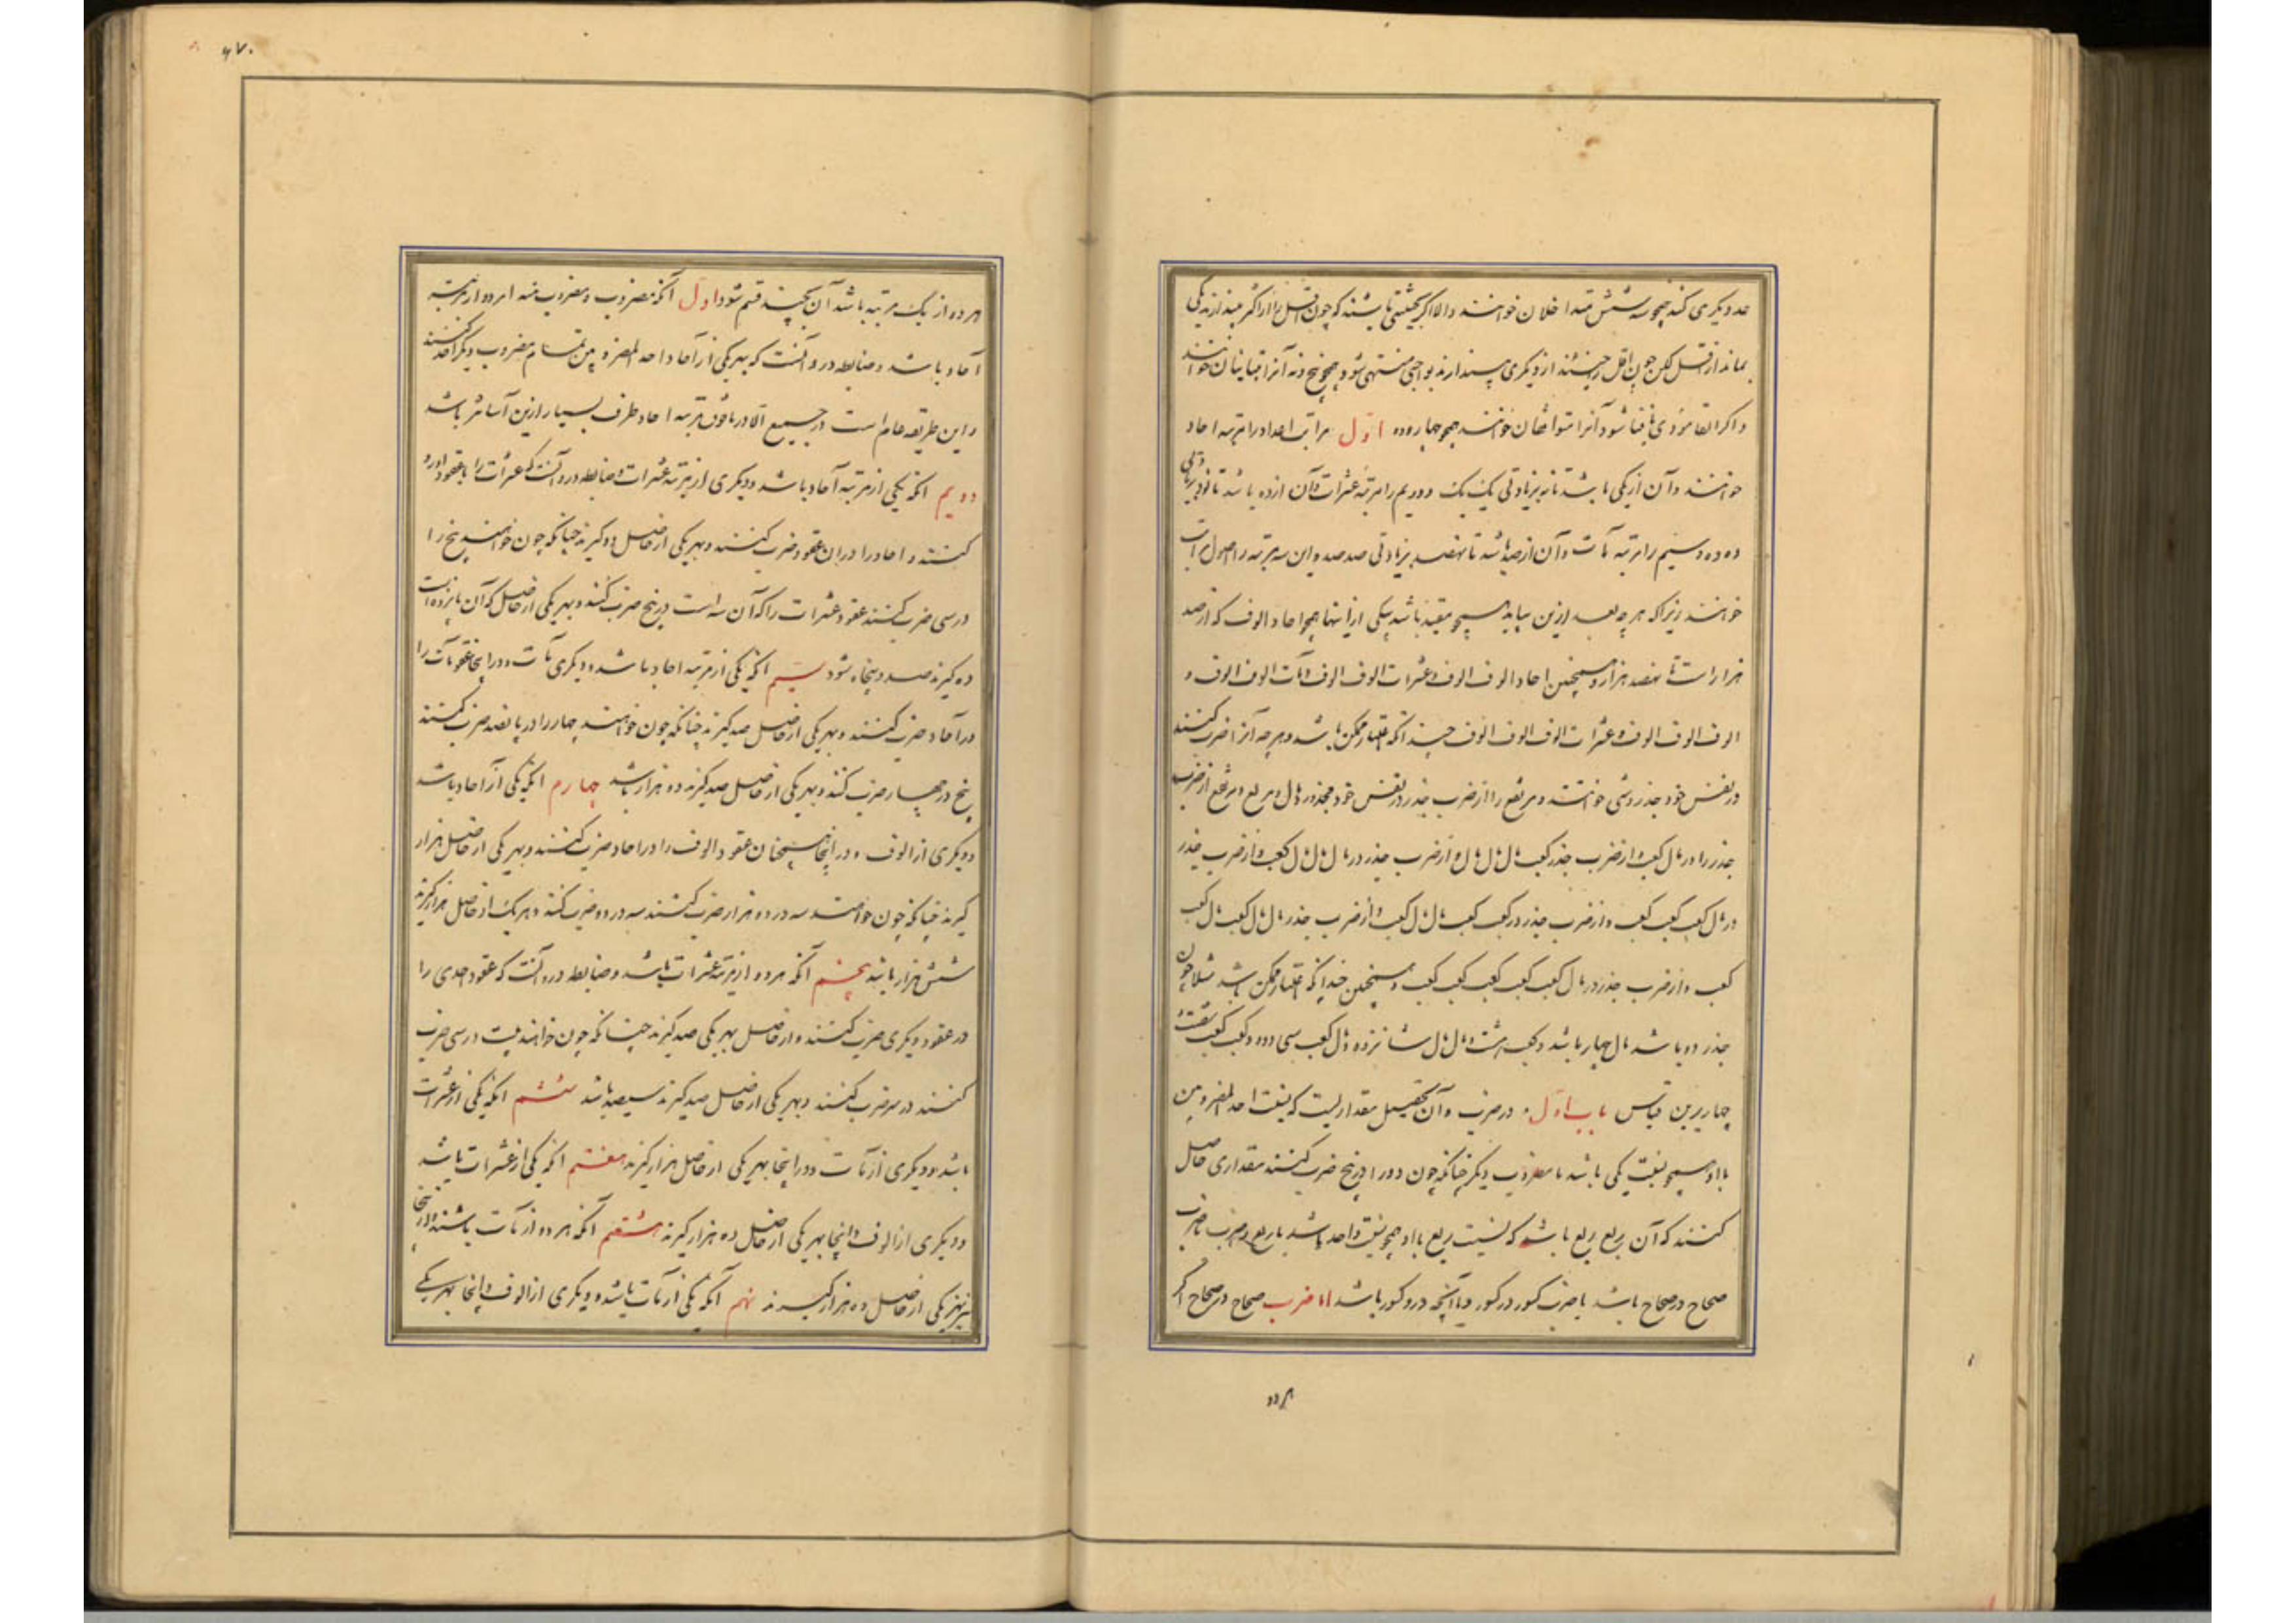 عدد دیگری کند همچو سه و شش متداخلان خوانند والا اگر بحیثیتی باشند که چون اقل را از اکثر بیندازند یکی
بماند از اقل لکن چون اقل را چند از دیگری بیندازند بواحدی منتهی شود همچو پنج و نه آنرا متباینان خوانند
و اگر آنرا متوافقان خوانند همچو چهار و ده اول مراتب اعداد را مرتبه احاد
خوانند و آن از یکی باشد تا نه بزیادتی یک یک و دویم را مرتبه عشرات و آن از ده باشد تا نود بزیادتی
ده ده و سیم را مرتبه مآت و آن از صد باشد تا نهصد بزیادتی صد صد و این سه مرتبه را اصول مراتب
خوانند زیرا که هر چه بعد ازین بیاید هیچو مقید باشد بیکی ازاینها همچو احاد الوف که از صد
هزار است تا نهصد هزار و همچنین احاد الوف الوف و عشرات الوف الوف و مآت الوف الوف و
الوف الوف الوف و عشرات الوف الوف الوف چندانکه اعتبار ممکن باشد و هر چه آنرا ضرب کنند
در نفس خود جذر و شی خوانند و مرتفع را از ضرب جذر در نفس خود مجذور و مال و مربع و مرتفع از ضرب
جذر را در مال کعب و از ضرب جذر کعب مال مال و از ضرب جذر در مال مال مال کعب و از ضرب جذر
در مال کعب کعب کعب و از ضرب جذر در کعب کعب مال مال کعب و از ضرب جذر مال مال کعب مال کعب
کعب و از ضرب جذر در مال کعب کعب کعب کعب کعب و همچنین چندانکه اعتبار ممکن باشد مثلا چون
جذر دو باشد مال چهار باشد و کعب هشت و مال مال شانزده و مال کعب سی و دو و کعب کعب شصت و
چهار برین قیاس باب اول در ضرب و آن تحصیل مقداریست که نسبت احد المضروبین
با او همچو نسبت یکی باشد با مضروب دیگر چنانکه چون دو را در پنج ضرب کنند مقداری حاصل
کنند که آن ربع ربع باشد که نسبت ربع با او همچو نسبت واحد باشد با ربع و ضرب یا ضرب
صحاح در صحاح باشد یا ضرب کسور در کسور و یا آنچه درو کسور باشد اما ضرب صحاح در صحاح اگر
هر دو
۶۷۰
هر دو از یک مرتبه باشد آن بچند قسم شود اول آنکه مضروب و مضروب فیه هر دو از مرتبه
آحاد باشد و ضابطه درو آنست که بهر یکی از آحاد احد المضروبین تمام مضروب دیگر اخذ کنند
و این طریقه عام است در جمیع الا در مافوق مرتبه احاد طرف بسیار ازین آسانتر باشد
دویم آنکه یکی از مرتبه آحاد باشد و دیگری از مرتبه عشرات و ضابطه درو آنست که عشرات را با عقود او رد
کنند و احاد را در ان عقود ضرب کنند و بهر یکی از حاصل ده گیرند چنانکه چون خواهند پنج را
در سی ضرب کنند عقود عشرات را که آن سه است در پنج ضرب کنند و بهر یکی از حاصل که آن پانزده است
ده گیرند صد و پنجاه شود سیم آنکه یکی از مرتبه احاد باشد و دیگری مآت و در اینجا عقود مآت را
در آحاد ضرب کنند و بهر یکی از حاصل صد گیرند چنانکه چون خواهند چهار را در پانصد ضرب کنند
پنج در چهار ضرب کنند و بهر یکی از حاصل صد گیرند دو هزار باشد چهارم آنکه یکی از آحاد باشد
و دیگری از الوف و در اینجا همچنان عقود الوف را در احاد ضرب کنند و بهر یکی از حاصل هزار
گیرند چنانکه چون خواهند سه در ده هزار ضرب کنند سه در دو ضرب کنند و بهر یک از حاصل هزار گیرند
شش هزار باشد پنجم آنکه هر دو از مرتبه عشرات باشد و ضابطه درو آنست که عقود احدی را
در عقود دیگری ضرب کنند و از حاصل بهر یکی صد گیرند چنانکه چون خواهند بیست در سی ضرب
کنند دو در سه ضرب کنند و بهر یکی از حاصل صد گیرند سیصد باشد ششم آنکه یکی از عشرات
باشد و دیگری از مآت و در اینجا بهر یکی از حاصل هزار گیرند هفتم آنکه یکی از عشرات باشد
و دیگری از الوف و اینجا بهر یکی از حاصل ده هزار گیرند هشتم آنکه هر دو از مآت باشند و در اینجا
نیز بهر یکی از حاصل ده هزار گیرند نهم آنکه یکی از مآت باشد و دیگری از الوف و اینجا بهر یکی